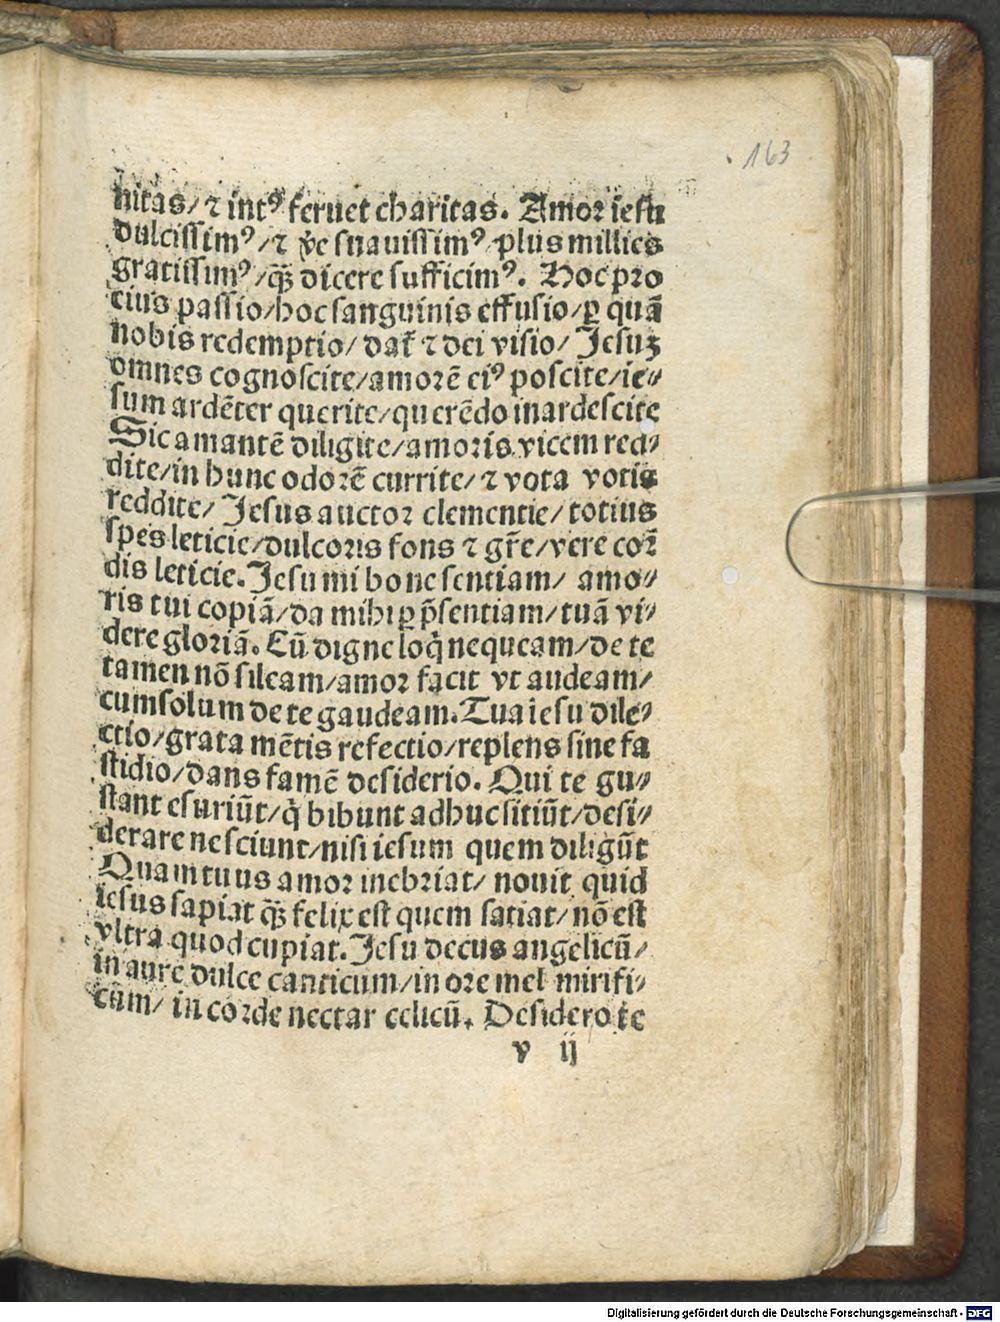 163
nitas/ ⁊ intꝰ feruet charitas. Amor iesu
dulcissimꝰ/ ⁊ v̄e suauissimꝰ/ plus millies
gratissimꝰ/ q̄ꝫ dicere sufficimꝰ. Hoc pro
cius passio/ hoc sanguinis effusio/ ꝑ quā
nobis redemptio/ dat̄ ⁊ dei visio/ Jesuꝫ
omnes cognoscite/ amorē eiꝰ poscite/ ie⸗
sum ardēter querite/ querēdo inardescite
Sic amantē diligite/ amoris vicem red⸗
dite/ in hunc odorē currite/ ⁊ vota votis
reddite/ Jesus auctor clementie/ totius
spes leticie/ dulcoris fons ⁊ gr̄e/ vere cor̄
dis leticie. Jesu mi bone sentiam/ amo⸗
ris tui copiā/ da mihi ꝑ p̄sentiam/ tuā vi⸗
dere gloriā. Cū digne loq̇ nequeam/ de te
tamen nō sileam/ amor facit vt audeam/
cum solum de te gaudeam. Tua iesu dile⸗
ctio/ grata mētis refectio/ replens sine fa
stidio/ dans famē desiderio. Qui te gu⸗
stant esuriūt/ q̇ bibunt adhuc sitiūt/ desi⸗
derare nesciunt/ nisi iesum quem diligūt
Quam tuus amor inebriat/ nouit quid
iesus sapiat q̄ꝫ felix est quem satiat/ nō est
vltra quod cupiat. Jesu decus angelicū/
in aure dulce canticum/ in ore mel mirifi⸗
cum/ in corde nectar celicū. Desidero te
v ij
Digitalisierung gefördert durch die Deutsche Forschungsgemeinschaft - DFG